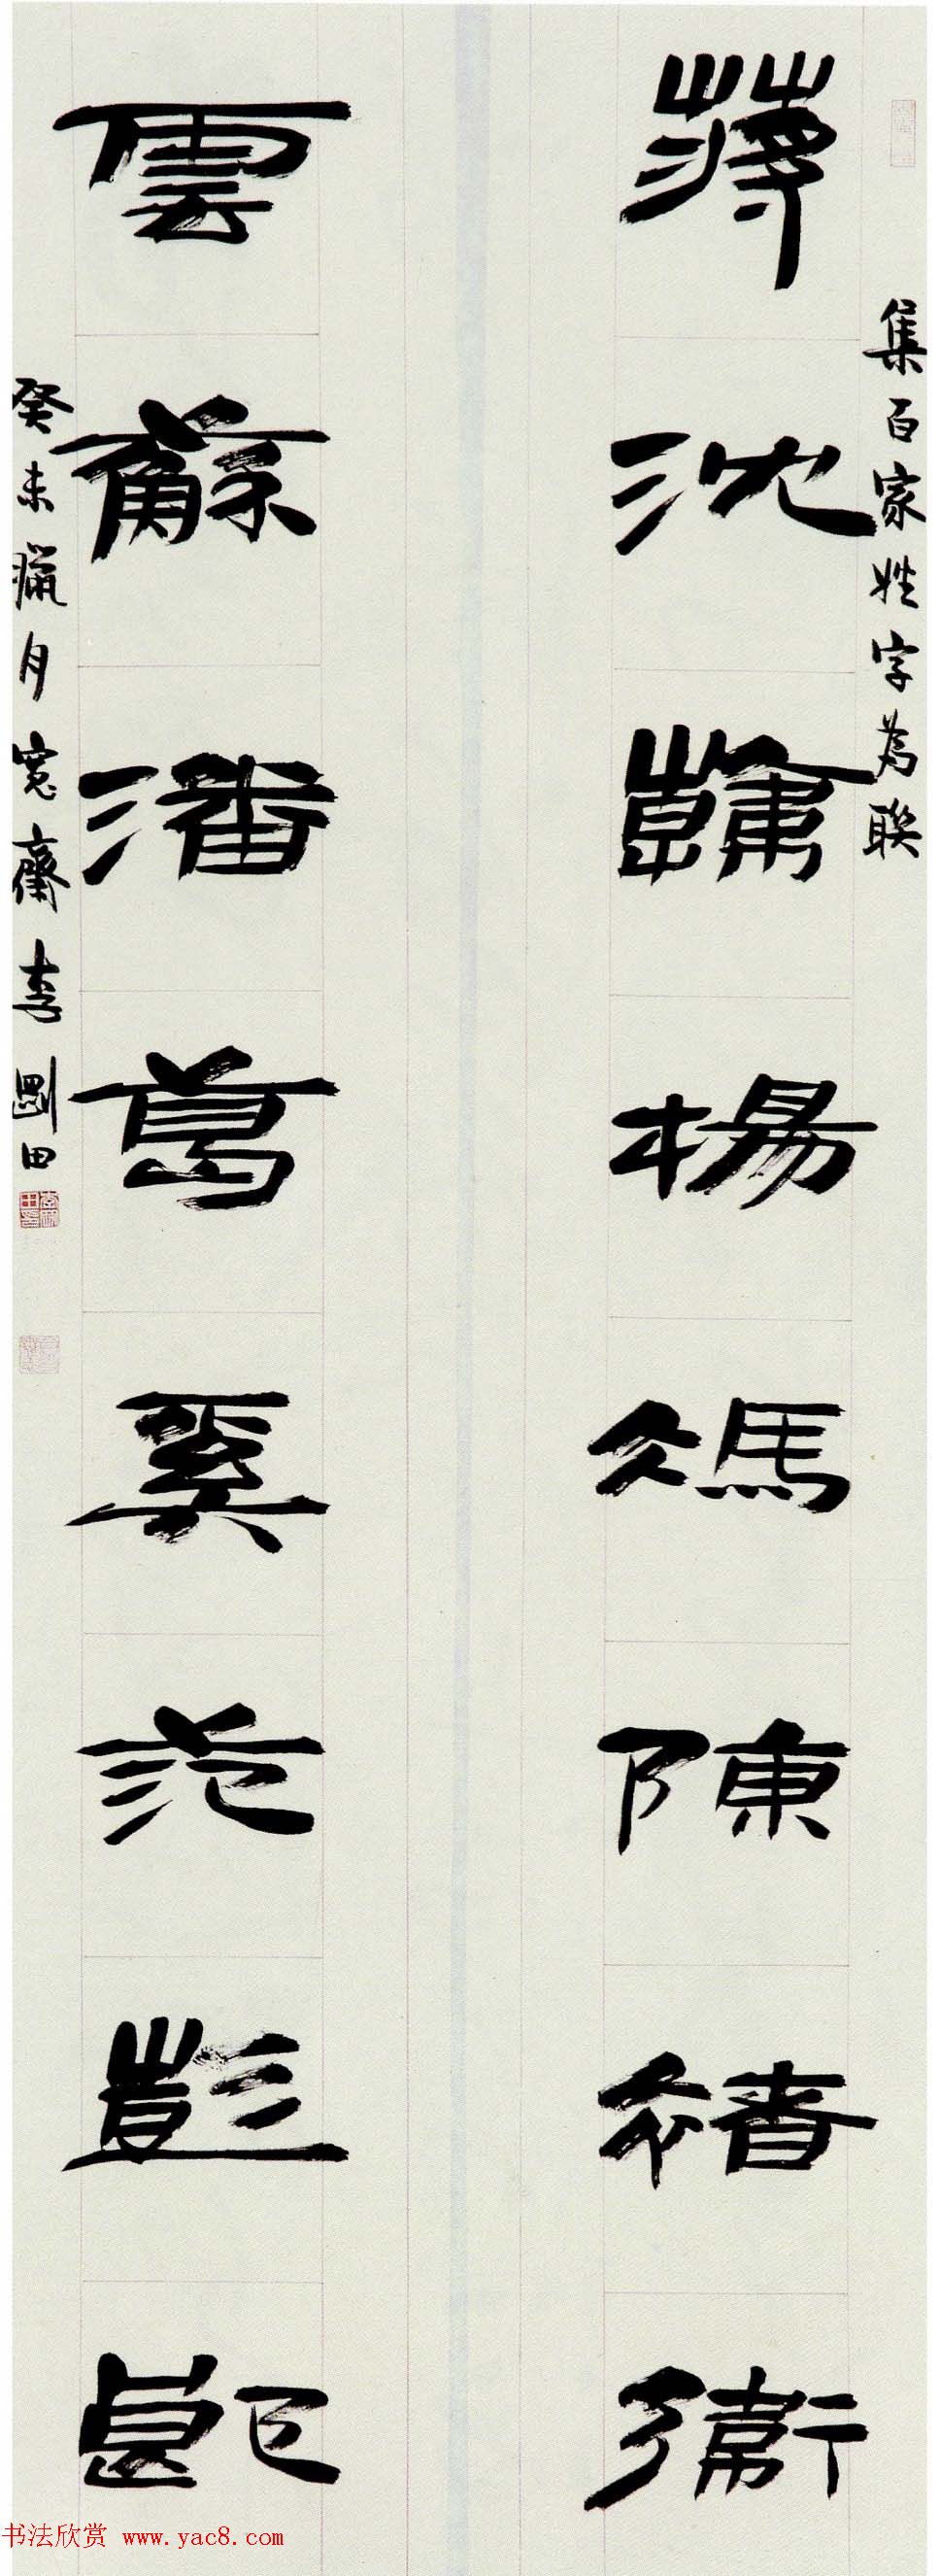 集百家姓字為聯
蔣沈韓楊馮陳褚衛
雲蘇潘葛奚范彭郎
癸未臘月寬齋李剛田
书法欣赏 www.yac8.com